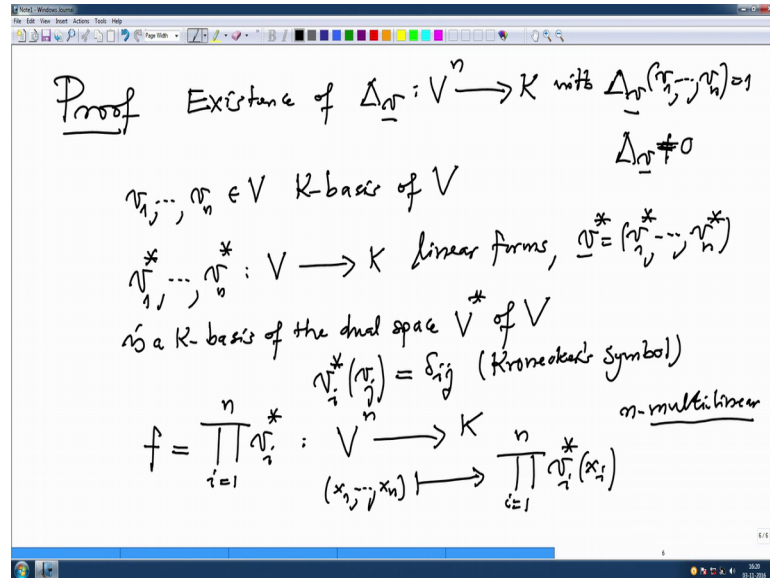 Note1 - Windows Journal
File Edit View Insert Actions Tools Help
Page Width
B I
Proof Existence of Δ_v : V^n ⟶ K with Δ_v(v_1,...,v_n)=1
Δ_v ≠ 0
v_1,...,v_n ∈ V K-basis of V
v_1^*,...,v_n^* : V ⟶ K linear forms, v^*=(v_1^*,...,v_n^*)
is a K-basis of the dual space V^* of V
v_i^*(v_j) = δ_ij (Kronecker's Symbol)
n-multilinear
f = ∏_{i=1}^n v_i^* : V^n ⟶ K
(x_1,...,x_n) ⟼ ∏_{i=1}^n v_i^*(x_i)
6/6
6
16:20
03-11-2016